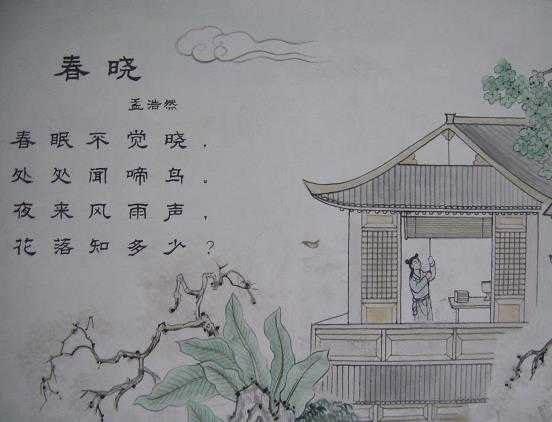 春晓
孟浩然
春眠不觉晓，
处处闻啼鸟。
夜来风雨声，
花落知多少？